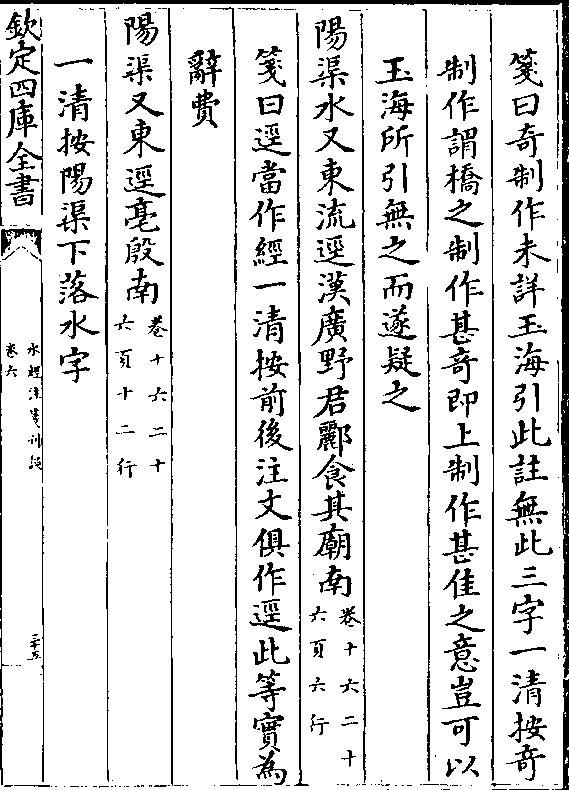 箋曰奇制作未詳玉海引此註無此三字一清按奇
制作謂橋之制作甚奇即上制作甚佳之意豈可以
玉海所引無之而遂疑之
陽渠水又東流逕漢廣野君酈食其廟南卷十六二十六頁六行
箋曰逕當作經一清按前後注文俱作逕此等實為
辭費
陽渠又東逕亳殷南卷十六二十六頁十二行
一清按陽渠下落水字
欽定四庫全書
水經注箋刊誤
卷六
三十五